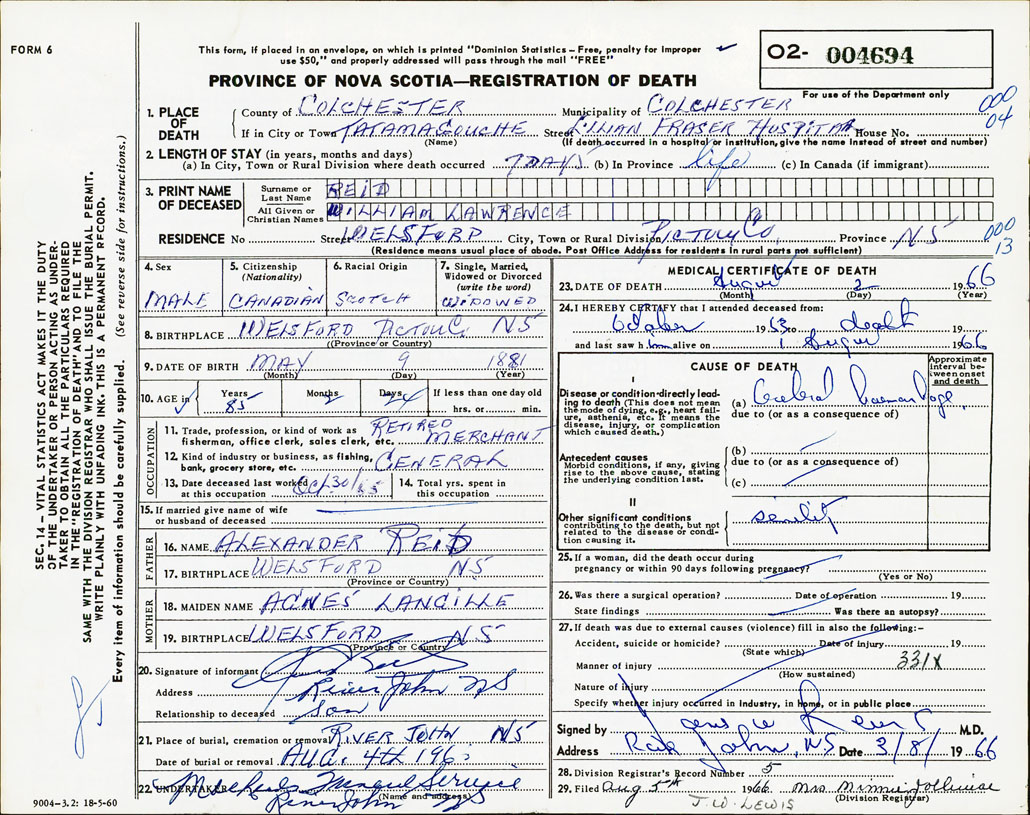 FORM 6
This form, if placed in an envelope, on which is printed "Dominion Statistics – Free, penalty for improper
use $50," and properly addressed will pass through the mail "FREE"
O2- 004694
For use of the Department only
PROVINCE OF NOVA SCOTIA—REGISTRATION OF DEATH
000
04
1. PLACE OF DEATH
County of COLCHESTER Municipality of COLCHESTER
If in City or Town TATAMAGOUCHE Street LILIAN FRASER HOSPITAL House No.
(Name) (If death occurred in a hospital or institution, give the name instead of street and number)
2. LENGTH OF STAY (in years, months and days)
(a) In City, Town or Rural Division where death occurred 7 DAYS (b) In Province life (c) In Canada (if immigrant)
3. PRINT NAME OF DECEASED
Surname or Last Name REID
All Given or Christian Names WILLIAM LAWRENCE
RESIDENCE No Street WELSFORD City, Town or Rural Division PICTOU CO, Province NS
000
13
(Residence means usual place of abode. Post Office Address for residents in rural parts not sufficient)
4. Sex MALE
5. Citizenship (Nationality) CANADIAN
6. Racial Origin SCOTCH
7. Single, Married, Widowed or Divorced (write the word) WIDOWED
8. BIRTHPLACE WELSFORD PICTOU C. NS
(Province or Country)
9. DATE OF BIRTH MAY 9 1881
(Month) (Day) (Year)
10. AGE in Years 85 Months 2 Days 24 If less than one day old hrs. or min.
OCCUPATION
11. Trade, profession, or kind of work as fisherman, office clerk, sales clerk, etc. RETIRED MERCHANT
12. Kind of industry or business, as fishing, bank, grocery store, etc. GENERAL
13. Date deceased last worked at this occupation Oct. 30/65
14. Total yrs. spent in this occupation
15. If married give name of wife or husband of deceased
FATHER
16. NAME ALEXANDER REID
17. BIRTHPLACE WELSFORD NS
(Province or Country)
MOTHER
18. MAIDEN NAME AGNES LANGILLE
19. BIRTHPLACE WELSFORD NS
(Province or Country)
20. Signature of informant
Address River John NS
Relationship to deceased son
21. Place of burial, cremation or removal RIVER JOHN NS
Date of burial or removal AUG. 4th 196
22. UNDERTAKER Funeral Service
River John NS
(Name and address)
9004–3.2: 18-5-60
MEDICAL CERTIFICATE OF DEATH
23. DATE OF DEATH August 2 1966
(Month) (Day) (Year)
24. I HEREBY CERTIFY that I attended deceased from:
October 1953 to death 19
and last saw him alive on 1 August 1966
CAUSE OF DEATH
Approximate interval between onset and death
I
Disease or condition directly leading to death (This does not mean the mode of dying, e.g., heart failure, asthenia, etc. It means the disease, injury, or complication which caused death.)
(a) Cerebral haemorrhage
due to (or as a consequence of)
Antecedent causes
Morbid conditions, if any, giving rise to the above cause, stating the underlying condition last.
(b)
due to (or as a consequence of)
(c)
II
Other significant conditions contributing to the death, but not related to the disease or condition causing it.
senility
25. If a woman, did the death occur during pregnancy or within 90 days following pregnancy?
(Yes or No)
26. Was there a surgical operation? Date of operation 19
State findings Was there an autopsy?
27. If death was due to external causes (violence) fill in also the following:–
Accident, suicide or homicide? Date of injury 19
(State which)
Manner of injury 331X
(How sustained)
Nature of injury
Specify whether injury occurred in industry, in home, or in public place
Signed by M.D.
Address River John, NS Date 3/8/ 1966
28. Division Registrar's Record Number 5
29. Filed Aug 5th 1966 Mrs Minnie
(Division Registrar)
J.W. LEWIS
SEC. 14 – VITAL STATISTICS ACT MAKES IT THE DUTY
OF THE UNDERTAKER OR PERSON ACTING AS UNDER-
TAKER TO OBTAIN ALL THE PARTICULARS REQUIRED
IN THE "REGISTRATION OF DEATH" AND TO FILE THE
SAME WITH THE DIVISION REGISTRAR WHO SHALL ISSUE THE BURIAL PERMIT.
WRITE PLAINLY WITH UNFADING INK. THIS IS A PERMANENT RECORD.
Every item of information should be carefully supplied. (See reverse side for instructions.)